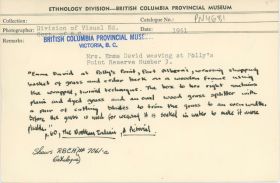 ETHNOLOGY DIVISION—BRITISH COLUMBIA PROVINCIAL MUSEUM
Collection: Catalogue No.: PN4681
Photographer: Division of Visual Ed. Date: 1961
Remarks: BRITISH COLUMBIA PROVINCIAL MUSEUM
VICTORIA, B. C.
Mrs. Emma David weaving at Polly's
Point Reserve Number 1.
"Emma David at Polly's Point, Port Alberni, weaving shopping
basket of grass and cedar bark on a wooden frame using
the wrapped, twined technique. The box to her right contains
plain and dyed grass and an oval wood grass splitter with
a pair of cutting blades to trim the grass to an even width.
Using the grass is used for weaving it is soaked in water to make it more
pliable." p.60, The Northern Indian: A Pictorial.
Shows RBCM 7061-a
Catalogue)